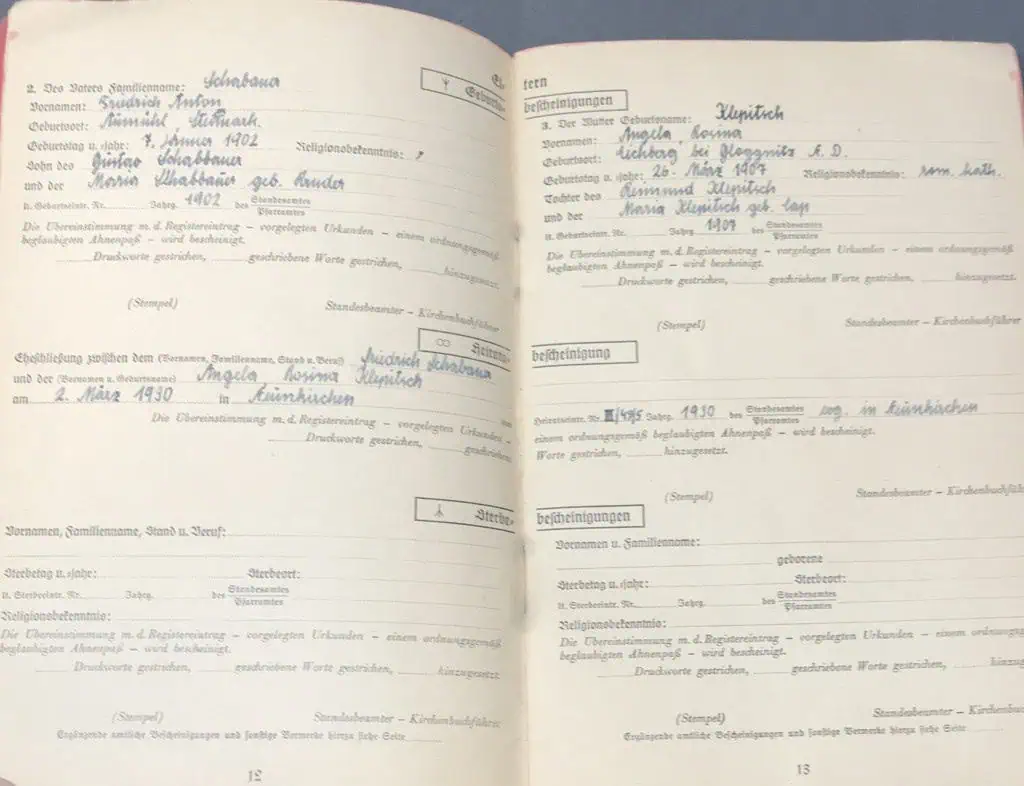 El-
Geburts-
2. Des Vaters Familienname: Schabauer
Vornamen: Friedrich Anton
Geburtsort: Aumühl, Steirmark.
Geburtstag u. -jahr: 7. Jänner 1902 Religionsbekenntnis: ?
Sohn des Gustav Schabbauer
und der Maria Schabbauer geb. Kruder
lt. Geburtseintr. Nr. Jahrg. 1902 des Standesamtes
Pfarramtes
Die Übereinstimmung m. d. Registereintrag – vorgelegten Urkunden – einem ordnungsgemäß
beglaubigten Ahnenpaß – wird bescheinigt.
Druckworte gestrichen, geschriebene Worte gestrichen, hinzugesetzt.
(Stempel) Standesbeamter – Kirchenbuchführer
∞ Heirats-
Eheschließung zwischen dem (Vornamen, Familienname, Stand u. Beruf) Friedrich Schabauer
und der (Vornamen u. Geburtsname) Angela, Rosina Klepitsch
am 2. März 1930 in Neunkirchen
Die Übereinstimmung m. d. Registereintrag – vorgelegten Urkunden –
Druckworte gestrichen, geschriebene
Sterbe-
Vornamen, Familienname, Stand u. Beruf:
Sterbetag u. -jahr: Sterbeort:
lt. Sterbeeintr. Nr. Jahrg. des Standesamtes
Pfarramtes
Religionsbekenntnis:
Die Übereinstimmung m. d. Registereintrag – vorgelegten Urkunden – einem ordnungsgemäß
beglaubigten Ahnenpaß – wird bescheinigt.
Druckworte gestrichen, geschriebene Worte gestrichen, hinzugesetzt.
(Stempel) Standesbeamter – Kirchenbuchführer
Ergänzende amtliche Bescheinigungen und sonstige Vermerke hierzu siehe Seite
12
tern
bescheinigungen
3. Der Mutter Geburtsname: Klepitsch
Vornamen: Angela, Rosina
Geburtsort: Eichberg bei Gloggnitz N. D.
Geburtstag u. -jahr: 26. März 1907 Religionsbekenntnis: röm. kath.
Tochter des Reimund Klepitsch
und der Maria Klepitsch geb. Cap
lt. Geburtseintr. Nr. Jahrg. 1907 des Standesamtes
Pfarramtes
Die Übereinstimmung m. d. Registereintrag – vorgelegten Urkunden – einem ordnungsgemäß
beglaubigten Ahnenpaß – wird bescheinigt.
Druckworte gestrichen, geschriebene Worte gestrichen, hinzugesetzt.
(Stempel) Standesbeamter – Kirchenbuchführer
bescheinigung
Heiratseintr. Nr. III/47/5 Jahrg. 1930 des Standesamtes evg. in Neunkirchen
Pfarramtes
einem ordnungsgemäß beglaubigten Ahnenpaß – wird bescheinigt.
Worte gestrichen, hinzugesetzt.
(Stempel) Standesbeamter – Kirchenbuchführer
bescheinigungen
Vornamen u. Familienname:
geborene
Sterbetag u. -jahr: Sterbeort:
lt. Sterbeeintr. Nr. Jahrg. des Standesamtes
Pfarramtes
Religionsbekenntnis:
Die Übereinstimmung m. d. Registereintrag – vorgelegten Urkunden – einem ordnungsgemäß
beglaubigten Ahnenpaß – wird bescheinigt.
Druckworte gestrichen, geschriebene Worte gestrichen, hinzug
(Stempel) Standesbeamter – Kirchenbuc
Ergänzende amtliche Bescheinigungen und sonstige Vermerke hierzu siehe Seite
13